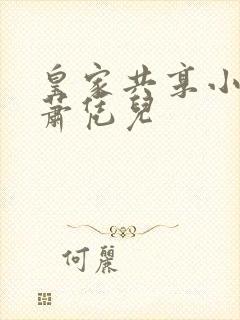 皇家共享小
萧恁兒
何麗